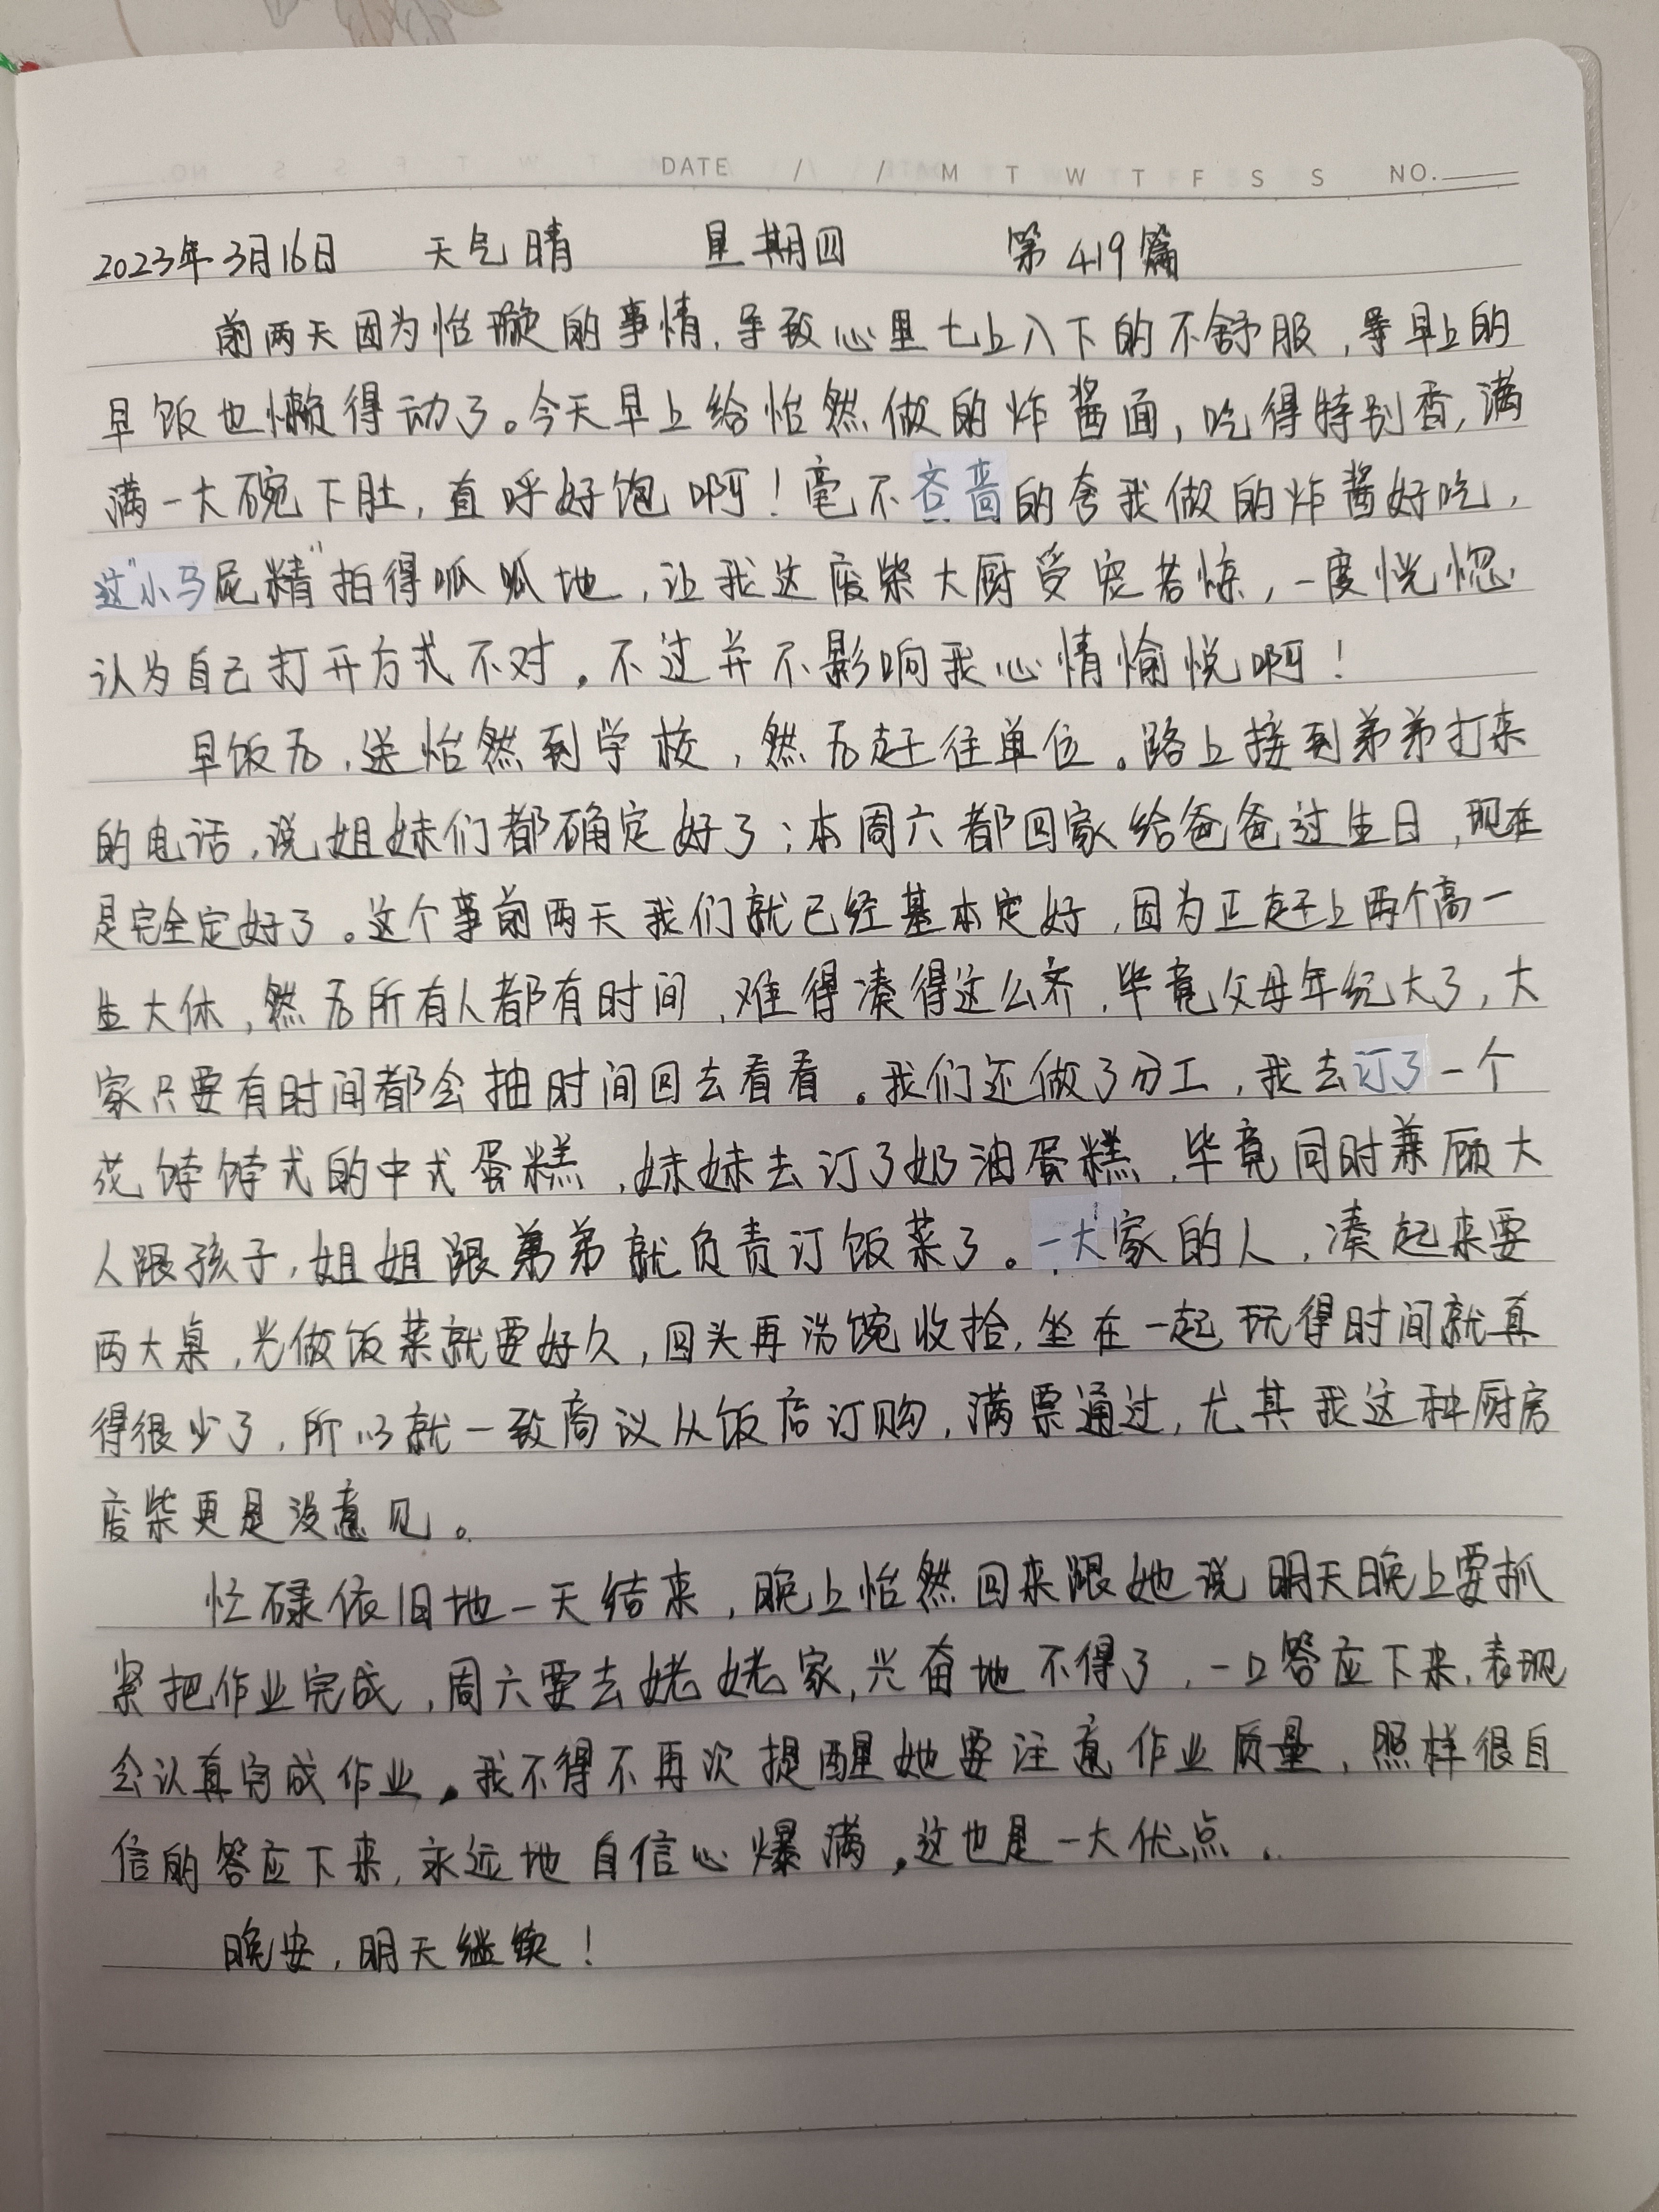 DATE / / M T W T F S S NO.
2023年3月16日 天气晴 星期四 第419篇
前两天因为怡璇的事情,导致心里七上八下的不舒服,导早上的
早饭也懒得动了。今天早上给怡然做的炸酱面,吃得特别香,满
满一大碗下肚,直呼好饱啊!毫不吝啬的夸我做的炸酱好吃,
这"小马屁精"拍得呱呱地,让我这废柴大厨受宠若惊,一度恍惚
认为自己打开方式不对。不过并不影响我心情愉悦啊!
早饭后,送怡然到学校,然后赶往单位。路上接到弟弟打来
的电话,说姐妹们都确定好了;本周六都回家给爸爸过生日,现在
是完全定好了。这个事前两天我们就已经基本定好,因为正赶上两个高一
生大休,然后所有人都有时间,难得凑得这么齐,毕竟父母年纪大了,大
家只要有时间都会抽时间回去看看。我们还做了分工,我去订了一个
花饽饽式的中式蛋糕,妹妹去订了奶油蛋糕,毕竟同时兼顾大
人跟孩子,姐姐跟弟弟就负责订饭菜了。一大家的人,凑起来要
两大桌,光做饭菜就要好久,回头再洗碗收拾,坐在一起玩得时间就真
得很少了,所以就一致商议从饭店订购,满票通过,尤其我这种厨房
废柴更是没意见。
忙碌依旧地一天结束,晚上怡然回来跟她说明天晚上要抓
紧把作业完成,周六要去姥姥家,兴奋地不得了,一口答应下来,表现
会认真完成作业。我不得不再次提醒她要注意作业质量,照样很自
信的答应下来,永远地自信心爆满。这也是一大优点。
晚安,明天继续!